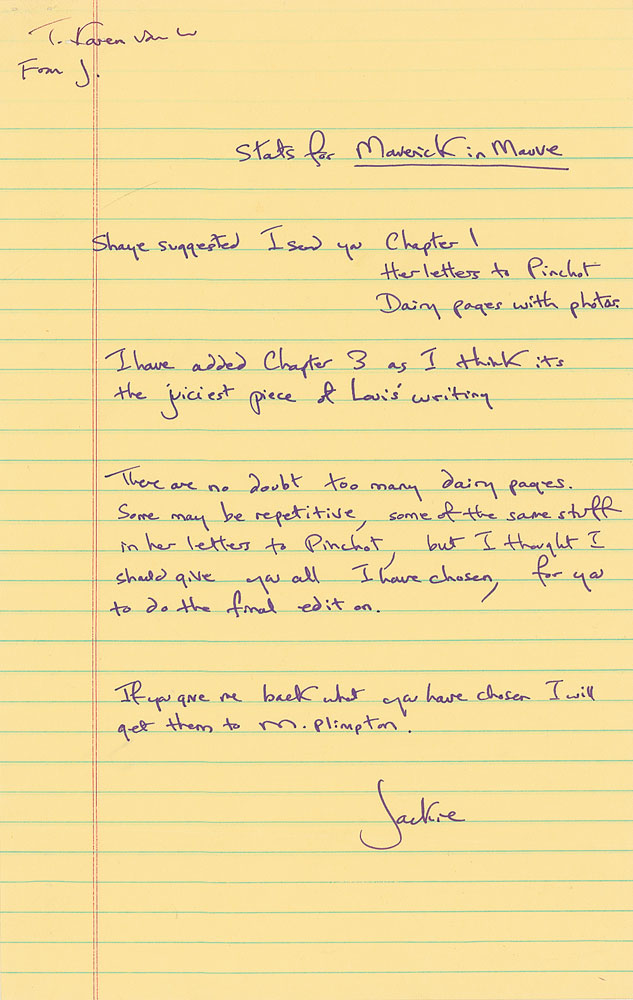 T. Karen van W
From J.
Stats for Maverick in Mauve
Shaye suggested I send you Chapter 1
Her letters to Pinchot
Dairy pages with photos.
I have added Chapter 3 as I think its
the juiciest piece of Louis' writing
There are no doubt too many dairy pages.
Some may be repetitive, some of the same stuff
in her letters to Pinchot, but I thought I
should give you all I have chosen, for you
to do the final edit on.
If you give me back what you have chosen I will
get them to M. Plimpton.
Jackie